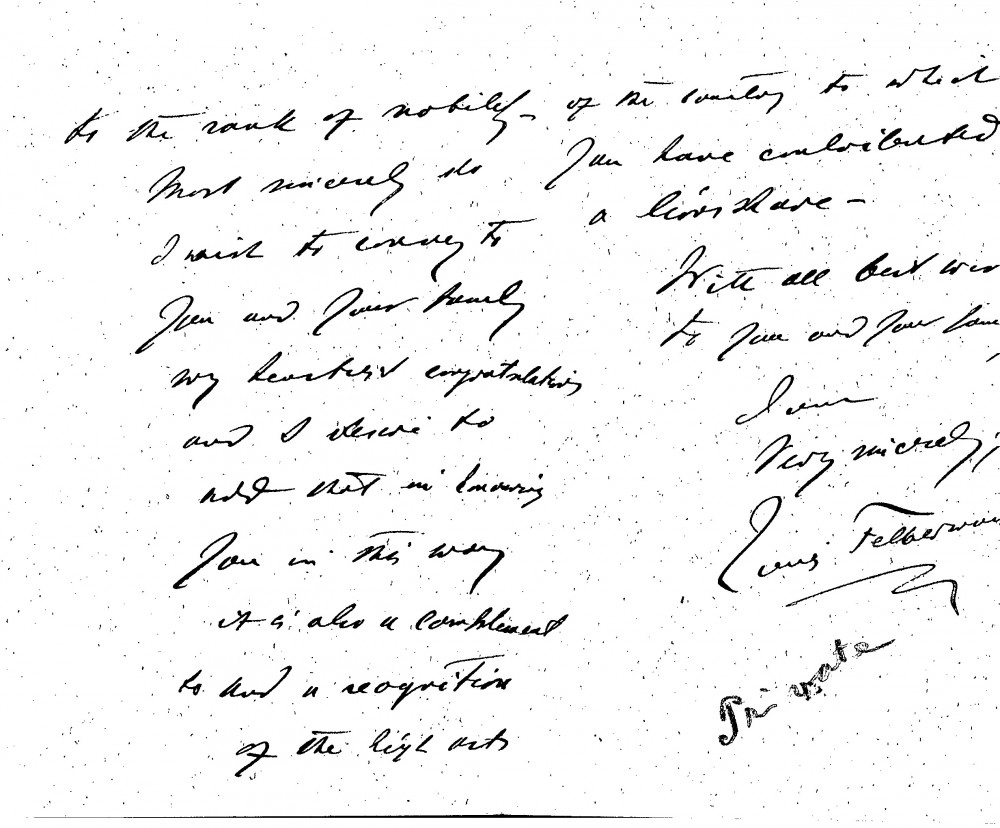 to the rank of nobility –
Most sincerely do
I wish to convey to
you and your family
my heartiest congratulations
and I desire to
add that in knowing
you in this way
it is also a compliment
to and a recognition
of the high arts
of the country to which
you have contributed
a lion's share –
With all best
to you and your
I am
Very sincerely,
Louis
Private